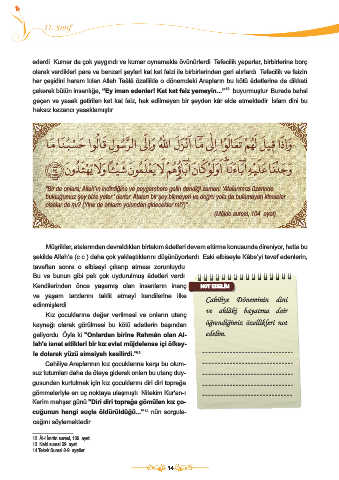 11. SINIF
ederdi Kumar da çok yaygındı ve kumar oynamakla övünürlerdi Tefecilik yaparlar, birbirlerine borç
olarak verdikleri para ve benzeri şeyleri kat kat faizi ile birbirlerinden geri alırlardı Tefecilik ve faizin
her çeşidini haram kılan Allah Teâlâ özellikle o dönemdeki Arapların bu kötü âdetlerine de dikkati
çekerek bütün insanlığa, "Ey iman edenler! Kat kat faiz yemeyin..."¹⁰ buyurmuştur Burada bahsi
geçen ve yasak getirilen kat kat faiz, hak edilmeyen bir şeyden kâr elde etmektedir İslam dini bu
haksız kazancı yasaklamıştır
وَاِذَا ق۪يلَ لَهُمْ تَعَالَوْا اِلٰى مَٓا اَنْزَلَ اللّٰهُ وَاِلَى الرَّسُولِ قَالُوا حَسْبُنَا مَا
وَجَدْنَا عَلَيْهِ اٰبَٓاءَنَاۜ اَوَلَوْ كَانَ اٰبَٓاؤُ۬هُمْ لَا يَعْلَمُونَ شَيْـًٔا وَلَا يَهْتَدُونَ
"Bir de onlara, Allah'ın indirdiğine ve peygambere gelin dendiği zaman: 'Atalarımızı üzerinde
bulduğumuz şey bize yeter' derler. Ataları bir şey bilmeyen ve doğru yolu da bulamayan kimseler
olsalar da mı? (Yine de onların yolundan gidecekler mi?)"
(Mâide suresi, 104 ayet)
Müşrikler, atalarından devraldıkları birtakım âdetleri devam ettirme konusunda direniyor, hatta bu
şekilde Allah'a (c c ) daha çok yaklaştıklarını düşünüyorlardı Eski elbiseyle Kâbe'yi tavaf edenlerin,
tavaftan sonra o elbiseyi çıkarıp atması zorunluydu
Bu ve bunun gibi pek çok uydurulmuş âdetleri vardı
Kendilerinden önce yaşamış olan insanların inanç
ve yaşam tarzlarını taklit etmeyi kendilerine ilke
edinmişlerdi
Kız çocuklarına değer verilmesi ve onların utanç
kaynağı olarak görülmesi bu kötü âdetlerin başından
geliyordu Öyle ki "Onlardan birine Rahmân olan Al-
lah'a isnat ettikleri bir kız evlat müjdelense içi öfkey-
le dolarak yüzü simsiyah kesilirdi."
Cahiliye Araplarının kız çocuklarına karşı bu olum-
suz tutumları daha da ileye giderek onları bu utanç duy-
gusundan kurtulmak için kız çocuklarını diri diri toprağa
gömmeleriyle en uç noktaya ulaşmıştı Nitekim Kur'an-ı
Kerim mahşer günü "Diri diri toprağa gömülen kız ço-
cuğunun hangi suçla öldürüldüğü..." nün sorgula-
cağını söylemektedir
NOT EDELİM
Cahiliye Döneminin dinî
ve ahlâkî hayatına dair
öğrendiğiniz özellikleri not
edelim.
14